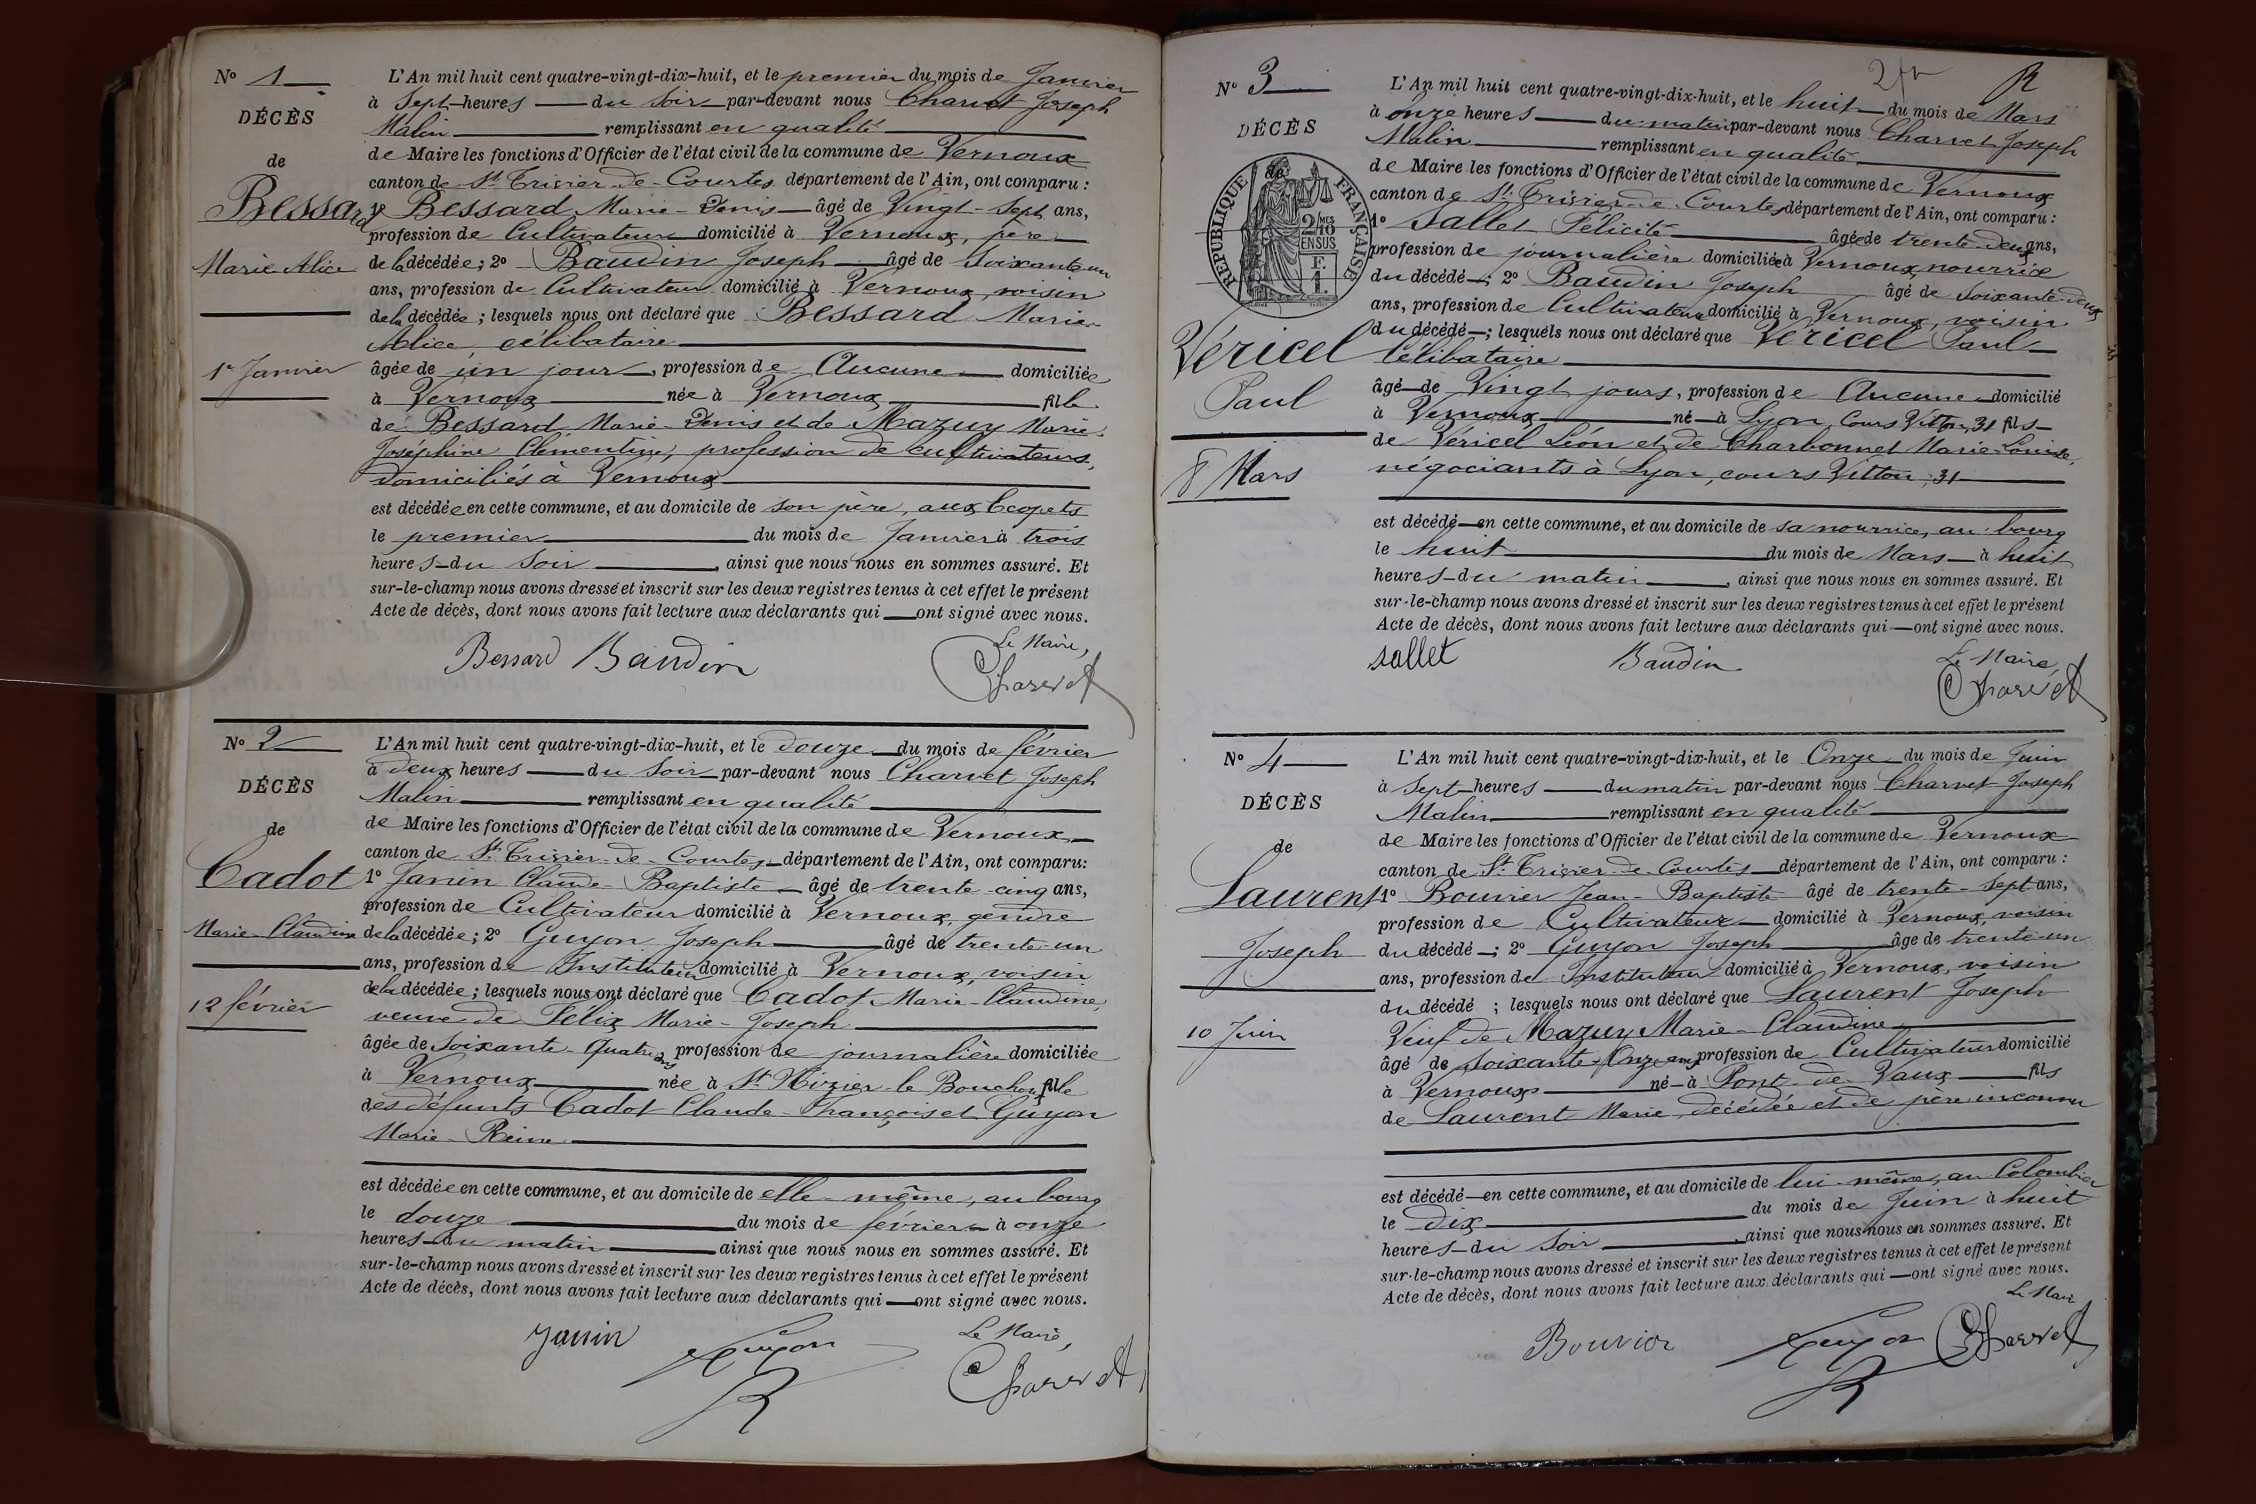 N° 1
DÉCÈS
de
Bessard
Marie Alice
1er Janvier
L'An mil huit cent quatre-vingt-dix-huit, et le premier du mois de Janvier
à Sept heures du Soir par-devant nous Charvet Joseph
Malin remplissant en qualité
de Maire les fonctions d'Officier de l'état civil de la commune de Vernoux
canton de St Trivier-de-Courtes département de l'Ain, ont comparu :
1° Bessard Marie-Denis âgé de Vingt-Sept ans,
profession de Cultivateur domicilié à Vernoux, père
de la décédée ; 2° Baudin Joseph âgé de Soixante un
ans, profession de Cultivateur domicilié à Vernoux, voisin
de la décédée ; lesquels nous ont déclaré que Bessard Marie
Alice, célibataire
âgée de un jour, profession de Aucune domiciliée
à Vernoux née à Vernoux fille
de Bessard Marie-Denis et de Mazuy Marie
Joséphine Clémentine, profession de cultivateurs,
domiciliés à Vernoux
est décédée en cette commune, et au domicile de son père, aux
le premier du mois de Janvier à trois
heures du Soir, ainsi que nous nous en sommes assuré. Et
sur-le-champ nous avons dressé et inscrit sur les deux registres tenus à cet effet le présent
Acte de décès, dont nous avons fait lecture aux déclarants qui ont signé avec nous.
Le Maire,
Bessard Baudin Charvet
N° 2
DÉCÈS
de
Cadot
Marie-Claudine
12 février
L'An mil huit cent quatre-vingt-dix-huit, et le douze du mois de février
à deux heures du Soir par-devant nous Charvet Joseph
Malin remplissant en qualité
de Maire les fonctions d'Officier de l'état civil de la commune de Vernoux
canton de St Trivier-de-Courtes département de l'Ain, ont comparu :
1° Janin Claude-Baptiste âgé de trente-cinq ans,
profession de Cultivateur domicilié à Vernoux, gendre
de la décédée ; 2° Guyon Joseph âgé de trente-un
ans, profession de Instituteur domicilié à Vernoux, voisin
de la décédée ; lesquels nous ont déclaré que Cadot Marie-Claudine,
veuve de Félix Marie-Joseph
âgée de Soixante-Quatre ans profession de journalière domiciliée
à Vernoux née à St Nizier-le-Bouchoux fille
des défunts Cadot Claude-François et Guyon
Marie-Reine
est décédée en cette commune, et au domicile de elle-même, au bourg
le douze du mois de février à onze
heures du matin ainsi que nous nous en sommes assuré. Et
sur-le-champ nous avons dressé et inscrit sur les deux registres tenus à cet effet le présent
Acte de décès, dont nous avons fait lecture aux déclarants qui ont signé avec nous.
Le Maire,
Janin Guyon Charvet
R
N° 3
DÉCÈS
de
RÉPUBLIQUE FRANÇAISE
2/10 MES
EN SUS
F.
1.
Véricel
Paul
8 Mars
R
L'An mil huit cent quatre-vingt-dix-huit, et le huit du mois de Mars
à onze heures du matin par-devant nous Charvet Joseph
Malin remplissant en qualité
de Maire les fonctions d'Officier de l'état civil de la commune de Vernoux
canton de St Trivier-de-Courtes département de l'Ain, ont comparu :
1° Sallet Félicité âgée de trente-deux ans,
profession de journalière domiciliée à Vernoux, nourrice
du décédé ; 2° Baudin Joseph âgé de Soixante-deux
ans, profession de Cultivateur domicilié à Vernoux, voisin
du décédé ; lesquels nous ont déclaré que Véricel Paul
Célibataire
âgé de Vingt jours, profession de Aucune domicilié
à Vernoux né à Lyon, Cours Vitton, 31 fils
de Véricel Léon et de Charbonnel Marie-Louise,
négociants à Lyon, cours Vitton, 31
est décédé en cette commune, et au domicile de sa nourrice, au bourg
le huit du mois de Mars à huit
heures du matin, ainsi que nous nous en sommes assuré. Et
sur-le-champ nous avons dressé et inscrit sur les deux registres tenus à cet effet le présent
Acte de décès, dont nous avons fait lecture aux déclarants qui ont signé avec nous.
Le Maire,
sallet Baudin Charvet
N° 4
DÉCÈS
de
Laurent
Joseph
10 Juin
L'An mil huit cent quatre-vingt-dix-huit, et le Onze du mois de Juin
à Sept heures du matin par-devant nous Charvet Joseph
Malin remplissant en qualité
de Maire les fonctions d'Officier de l'état civil de la commune de Vernoux
canton de St Trivier-de-Courtes département de l'Ain, ont comparu :
1° Bouvier Jean-Baptiste âgé de trente-Sept ans,
profession de Cultivateur domicilié à Vernoux, voisin
du décédé ; 2° Guyon Joseph âgé de trente-un
ans, profession de Instituteur domicilié à Vernoux, voisin
du décédé ; lesquels nous ont déclaré que Laurent Joseph
Veuf de Mazuy Marie-Claudine
âgé de Soixante-Onze ans profession de Cultivateur domicilié
à Vernoux né à Pont-de-Vaux fils
de Laurent Marie, décédée et de père inconnu
est décédé en cette commune, et au domicile de lui-même, au Colombier
le Dix du mois de Juin à huit
heures du Soir ainsi que nous nous en sommes assuré. Et
sur-le-champ nous avons dressé et inscrit sur les deux registres tenus à cet effet le présent
Acte de décès, dont nous avons fait lecture aux déclarants qui ont signé avec nous.
Le Maire
Bouvier Guyon Charvet
R